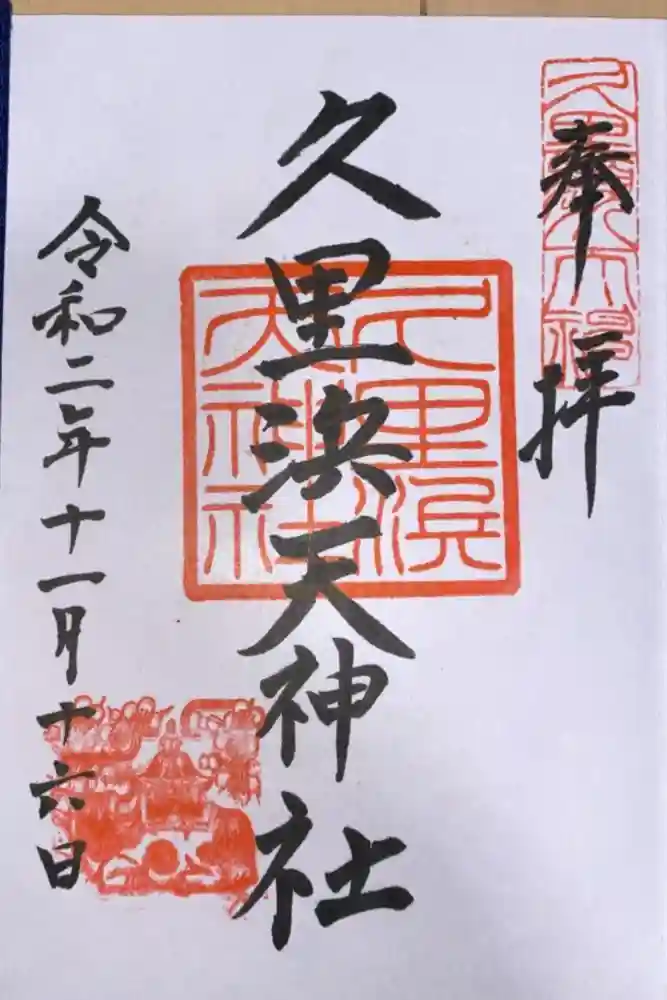 奉拝
久里浜天神社
令和二年十一月十六日
久里浜天神社